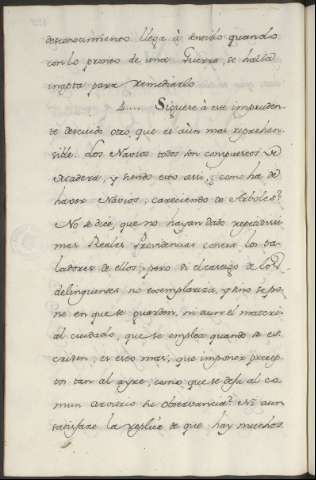 desconocimiento llega à sentido quando
con lo pronto de una Guerra, se halla
inepta para remediarlo.
4.... Siguese à este impruden-
te descuido otro, que es aùn mas reprehen-
sible. Los Navios todos son compuestos de
Madera, y siendo esto assi, ¿como ha de
haver Navios, careciendo de Arboles?
No se dice, que no hayan dado repetidissi-
mas Reales Providencias contra los ta-
ladores de ellos; pero si el castigo de los
delinquentes no exemplariza, y si no se po-
ne en que se guarden, ni aun el material
cuidado, que se emplea quando se es-
criven, es esto mas, que imponer precep-
tos tan al ayre, como que se deja al co-
mun arvitrio su observancia? Ni aun
satisface la replica de que hay muchos